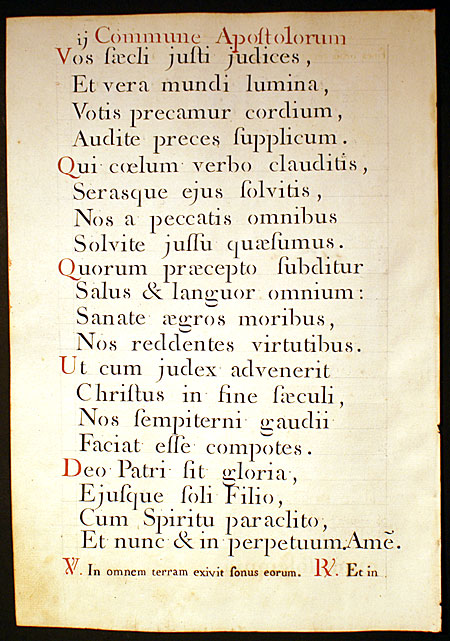 ij Commune Apoſtolorum
Vos ſæcli juſti judices,
Et vera mundi lumina,
Votis precamur cordium,
Audite preces ſupplicum.
Qui cœlum verbo clauditis,
Serasque ejus ſolvitis,
Nos a peccatis omnibus
Solvite juſſu quæſumus.
Quorum præcepto ſubditur
Salus & languor omnium:
Sanate ægros moribus,
Nos reddentes virtutibus.
Ut cum judex advenerit
Chriſtus in fine ſæculi,
Nos ſempiterni gaudii
Faciat eſſe compotes.
Deo Patri ſit gloria,
Ejuſque ſoli Filio,
Cum Spiritu paraclito,
Et nunc & in perpetuum. Amẽ.
℣. In omnem terram exivit ſonus eorum. ℟. Et in